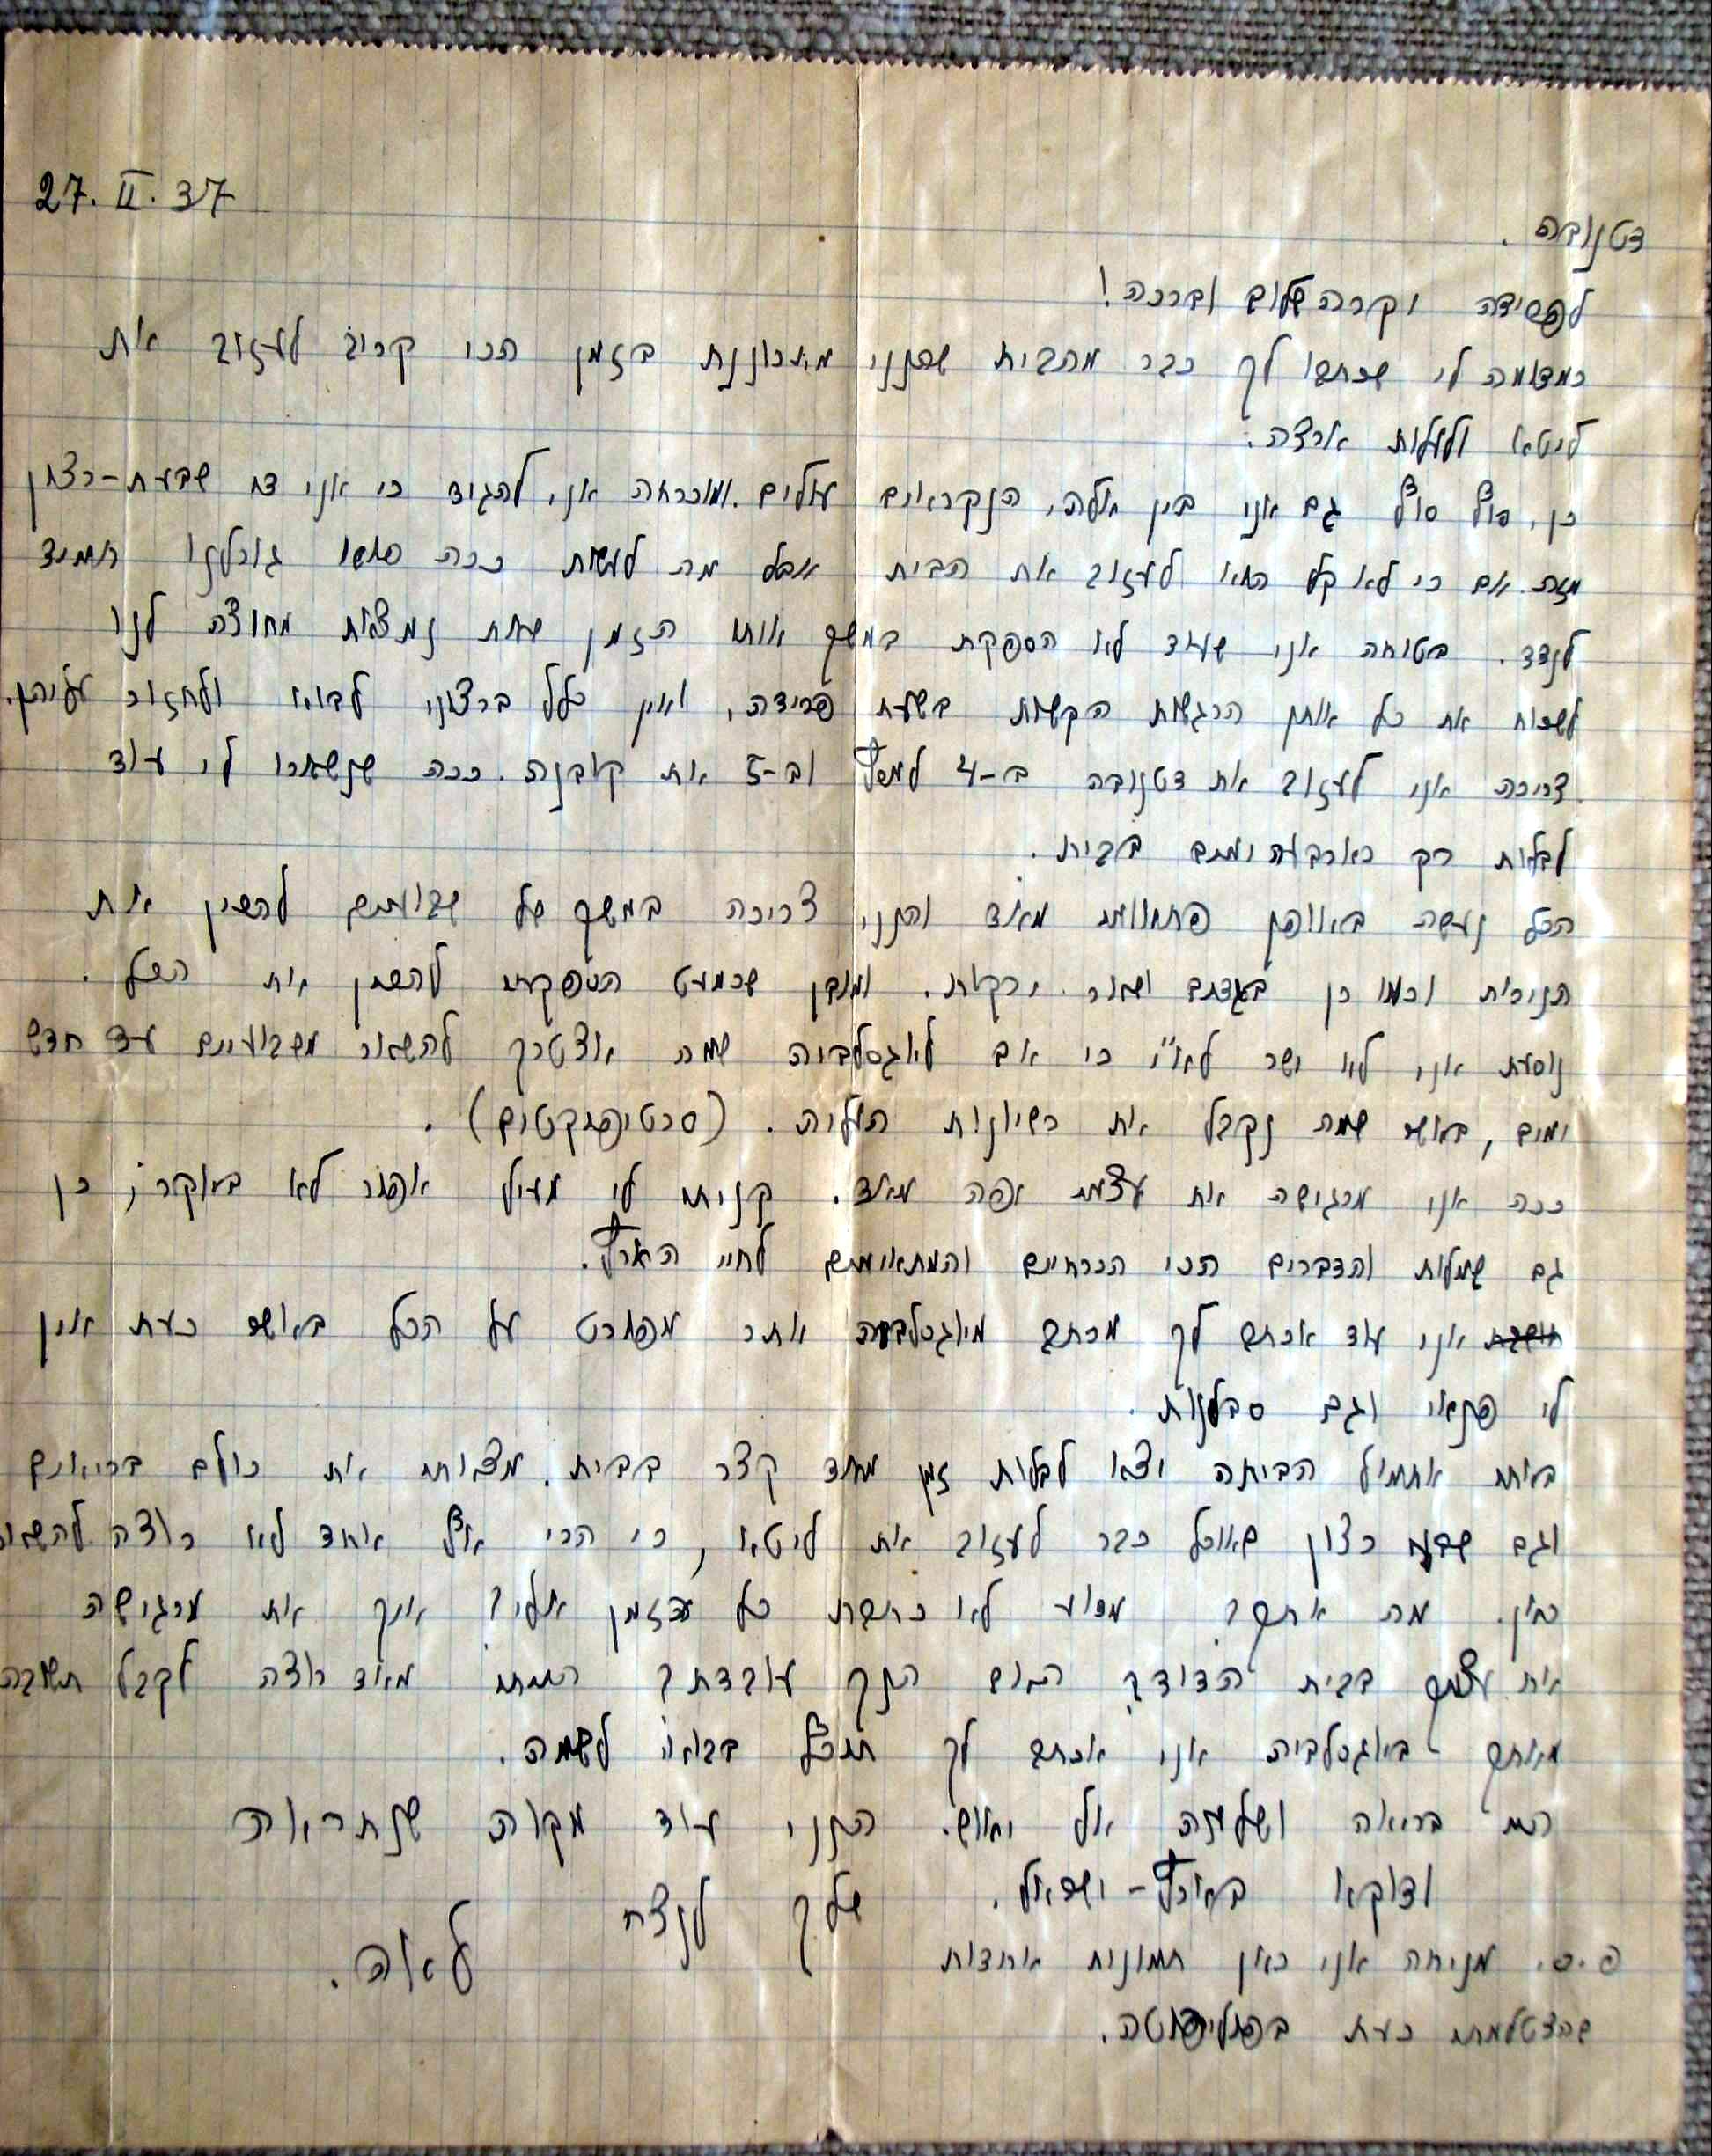 27. II. 37
דטנובה.
לפסידה וקרה שלום וברכה!
כמדומה לי שכתבתי לך כבר מהבית שהנני מתכוננת בזמן הכי קרוב לעזוב את
ליטא ולעלות ארצה.
כן, סוף סוף גם אני בין אלה, הנקראים עולים. ומוכרחה אני להגיד כי אני דוקא שבעת-רצון
מזה אם כי לא קל הוא לעזוב את הבית אבל מה לעשות ככה גורלנו תמיד
לנדד. בטוחה אני שעוד לא הספקת במשך אותו הזמן שאת נמצאת מחוצה לנו
לשכוח את כל אותן הרגשות הקשות בשעת פרידה, ואין כלל ברצוני לבוא ולחזור עליהן.
צריכה אני לעזוב את דטנובה ב-4 למרץ וב-5 את קובנה. ככה שנשארו לי עוד
לבלות רק כארבעה ימים בבית.
הכל נעשה באופן פתאומי מאד והנני צריכה במשך של שבועיים להשיג את
הניירות וכמו כן בגדים ושאר ירקות. ומובן שכמעט הספקתי להשיג את הכל.
נוסעת אני לא ישר לא"י כי אם ליוגסלביה שמה אצטרך להשאר משבועיים עד חדש
ימים, באשר שמה נקבל את רשיונות העליה. (סרטיפיקטים).
ככה אני מרגישה את עצמי יפה מאד. קניתי לי מעיל אפור לא ביוקר; כן
גם שמלות והדברים הכי הכרחיים והמתאימים לחיי הארץ.
חושבת אני עוד אכתב לך מכתב מיוגסלביה יותר מפורט על הכל באשר כעת אין
לי פנאי וגם סבלנות.
באתי אתמול הביתה יצא לבלות זמן מאד קצר בבית. מצאתי את כולם בריאים
וגם שבעי רצון שאוכל כבר לעזוב את ליטא, כי הרי אף אחד לא רוצה להשאר
כאן. מה אתך? מדוע לא כתבת כל הזמן אלי? איך את מרגישה
את עצמך בבית הדודה? האם הנך עובדת? הייתי מאוד רוצה לקבל תשובה
מאתך ביוגסלביה אני אכתב לך תיכף בבואי לשמה.
היי בריאה ושלמה ואל יאוש. הנני עוד מקוה שנתראה
ודוקא בארץ-ישראל.
שלך לנצח
לאה.
פ.ס. מניחה אני כאן תמונות אחדות
שהצטלמתי כעת